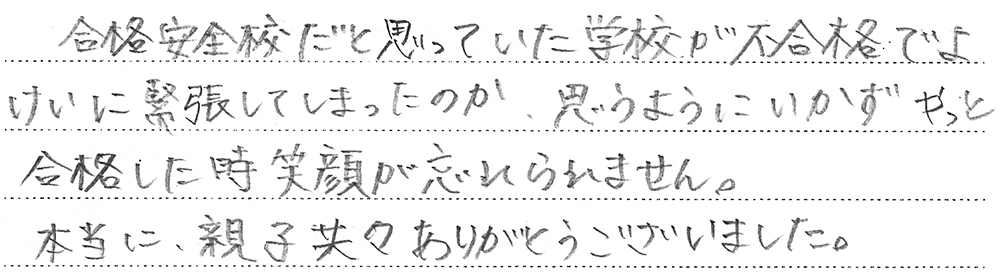 合格安全校だと思っていた学校が不合格でよ
けいに緊張してしまったのか、思うようにいかずやっと
合格した時笑顔が忘れられません。
本当に、親子共々ありがとうございました。